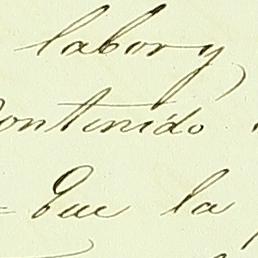 labor y
contenido
= Que la